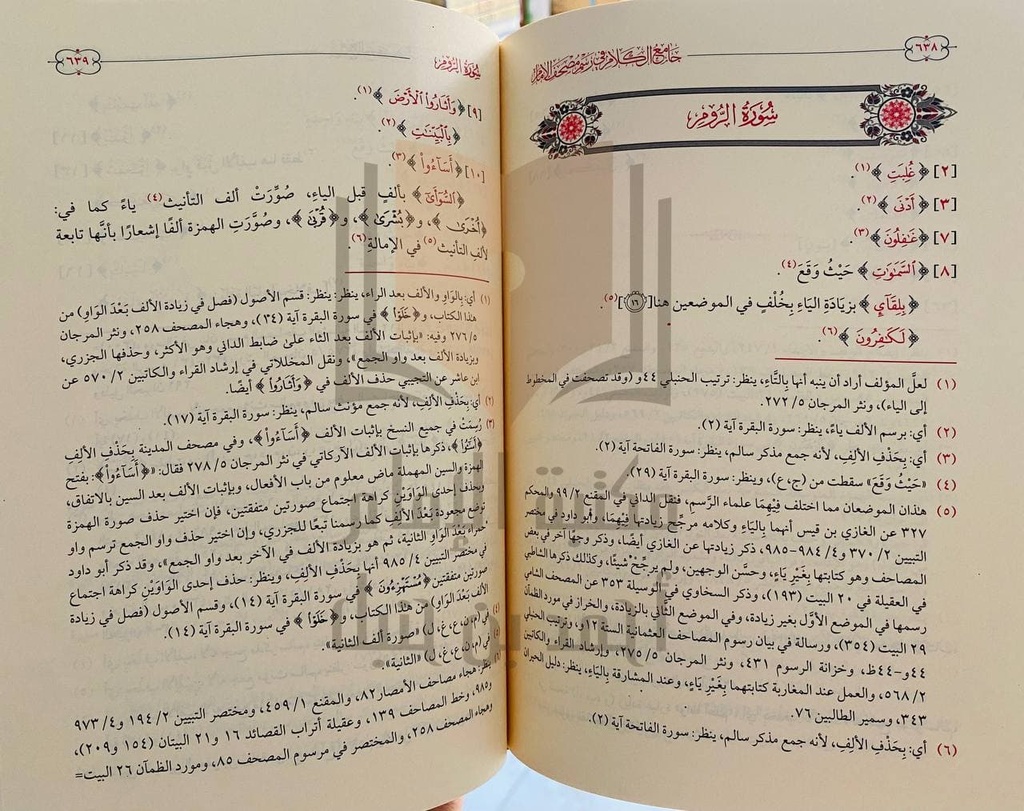 ٦٣٨
جامع الكلام في رسم مصحف الإمام
سورة الروم
[٢] ﴿ غُلِبَتِ ﴾(١).
[٣] ﴿ أَدْنَى ﴾(٢).
[٧] ﴿ غَٰفِلُونَ ﴾(٣).
[٨] ﴿ ٱلسَّمَٰوَٰتِ ﴾ حَيْثُ وَقَعَ(٤).
﴿ بِلِقَآيِٕ ﴾ بزيادَةِ اليَاءِ بِخُلْفٍ في الموضعين هنا[١٦](٥).
﴿ لَكَٰفِرُونَ ﴾(٦).
(١) لعلَّ المؤلف أراد أن ينبه أنها بِالتَّاءِ، ينظر: ترتيب الحنبلي ٤٤و (وقد تصحفت في المخطوط
إلى الياء)، ونثر المرجان ٥/ ٢٧٢.
(٢) أي: برسم الألف ياءً، ينظر: سورة البقرة آية (٢).
(٣) أي: بِحَذْفِ الألِفِ، لأنه جمع مذكر سالم، ينظر: سورة الفاتحة آية (٢).
(٤) «حَيْثُ وَقَعَ» سقطت من (ج، ع)، وينظر: سورة البقرة آية (٢٩).
(٥) هذان الموضعان مما اختلف فِيْهِمَا علماء الرَّسم، فنقل الداني في المقنع ٢/ ٩٩ والمحكم
٣٢٧ عن الغازي بن قيس أنهما بِاليَاءِ وكلامه مرجح زيادتها فِيْهِمَا، وأبو داود في مختصر
التبيين ٢/ ٣٧٠ و٤/ ٩٨٤-٩٨٥، ذكر زيادتها عن الغازي أيضًا، وذكر وجهًا آخر في بعض
المصاحف وهو كتابتها بِغَيْرِ يَاءٍ، وحسَّن الوجهين، ولم يرجحْ شيئًا، وكذلك ذكرها الشاطبي
في العقيلة في ٢٠ البيت (١٩٣)، وذكر السخاوي في الوسيلة ٣٥٣ عن المصحف الشامي
رسمها في الموضع الأوَّل بغير زيادة، وفي الموضع الثاني بالزيادة، والخراز في مورد الظمآن
٢٩ البيت (٣٥٤)، ورسالة في بيان رسوم المصاحف العثمانية الستة ١٢و، وترتيب الحنبلي
٤٤و-٤٤ظ، وخزانة الرسوم ٤٣١، ونثر المرجان ٥/ ٢٧٥، وإرشاد القراء والكاتبين
٢/ ٥٦٨، والعمل عند المغاربة كتابتهما بِاليَاءِ، وعند المشارقة بِغَيْرِ يَاءٍ، ينظر: دليل الحيران
٣٤٣، وسمير الطالبين ٧٦.
(٦) أي: بِحَذْفِ الألِفِ، لأنه جمع مذكر سالم، ينظر: سورة الفاتحة آية (٢).
سورة الروم
٦٣٩
[٩] ﴿ وَأَثَارُواْ ٱلْأَرْضَ ﴾(١).
﴿ بِٱلْبَيِّنَٰتِ ﴾(٢).
[١٠] ﴿ أَسَٰٓـُٔواْ ﴾(٣).
﴿ ٱلسُّوٓأَىٰٓ ﴾ بألفٍ قبل الياءِ، صُوِّرَتْ ألف التأنيث(٤) ياءً كما في:
﴿أُخْرَى ﴾، و﴿ بُشْرَى ﴾، و﴿ قُرْبَى ﴾، وصُوِّرَتِ الهمزة ألفًا إشعارًا بأنَّها تابعة
لألفِ التأنيث(٥) في الإمالة(٦).
(١) أي: بِالوَاوِ والألف بعد الراء، ينظر: ينظر: قسم الأصول (فصل في زيادة الألف بَعْدَ الوَاوِ) من
هذا الكتاب، و﴿ خَلَوْاْ ﴾ في سورة البقرة آية (٣٤)، وهجاء المصحف ٢٥٨، ونثر المرجان
٥/ ٢٧٦ وفيه: «بإثبات الألف بعد الثاء على ضابط الداني وهو الأكثر، وحذفها الجزري،
وبزيادة الألف بعد واو الجمع»، ونقل المخللاتي في إرشاد القراء والكاتبين ٢/ ٥٧٠ عن
ابن عاشر عن التجيبي حذف الألف في ﴿ وَأَثَارُواْ ﴾ أيضًا.
(٢) أي: بِحَذْفِ الألِفِ، لأنه جمع مؤنث سالم، ينظر: سورة البقرة آية (١٧).
(٣) رُسِمَتْ في جميع النسخ بإثبات الألف ﴿ أَسَآءُواْ ﴾، وفي مصحف المدينة بِحَذْفِ الألِفِ
﴿أَسَٰٓـُٔواْ﴾، ذكرها بإثبات الألف الأركاتي في نثر المرجان ٥/ ٢٧٨ فقال: «﴿ أَسَآءُواْ ﴾: بفتح
الهمزة والسين المهملة ماض معلوم من باب الأفعال، وبإثبات الألف بعد السين بالاتفاق،
وبحذف إحدى الوَاوَيْنِ كراهة اجتماع صورتين متفقتين، فإن اختير حذف صورة الهمزة
توضع مجعودة بَعْدَ الألف كما رسمنا تبعًا للجزري، وإن اختير حذف واو الجمع ترسم واو
حمراء بَعْدَ الوَاوِ الثانية، ثم هو بزيادة الألف في الآخر بعد واو الجمع»، وقد ذكر أبو داود
في مختصر التبيين ٤/ ٩٨٥ أنها بِحَذْفِ الألِفِ، وينظر: حذف إحدى الوَاوَيْنِ كراهة اجتماع
صورتين متفقتين ﴿ مُسْتَهْزِءُونَ ﴾ في سورة البقرة آية (١٤)، وقسم الأصول (فصل في زيادة
الألف بَعْدَ الوَاوِ) من هذا الكتاب، و﴿ خَلَوْاْ ﴾ في سورة البقرة آية (١٤).
(٤) في (م، ن، ع، غ، ل) «صورة ألف الثانية».
(٥) في (م، ن، ع، غ، ل) «الثانية».
(٦) ينظر: هجاء مصاحف الأمصار ٨٢، والمقنع ١/ ٤٥٩، ومختصر التبيين ٢/ ١٩٤ و٤/ ٩٧٣
و٩٨٥، وخط المصاحف ١٣٩، وعقيلة أتراب القصائد ١٦ و٢١ البيتان (١٥٤ و٢٠٩)،
وهجاء المصحف ٢٥٨، والمختصر في مرسوم المصحف ٨٥، ومورد الظمآن ٢٦ البيت=